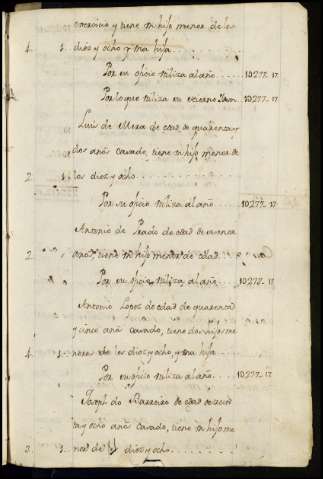 exercicio y tiene un hijo menor de los
4. 1. diez y ocho y una hija
Por su oficio utiliza al año 10277. 17
Por lo que utiliza en 10277. 17
Luis de Mera de edad de quarenta y
dos años casado, tiene un hijo menor de
2 1. los diez y ocho
Por su oficio utiliza al año 10277. 17
Antonio de Prado de edad de
2 años, tiene un hijo menor de edad
Por su oficio utiliza al año 10277. 17
Antonio Lopez de edad de quarenta
y cinco años casado, tiene dos hijos me
4. 1. nores de los diez y ocho, y una hija
Por su oficio utiliza al año 10277. 17
Joseph do Barreiro de edad de
ta y ocho años casado, tiene un hijo me
3 1. nor de diez y ocho